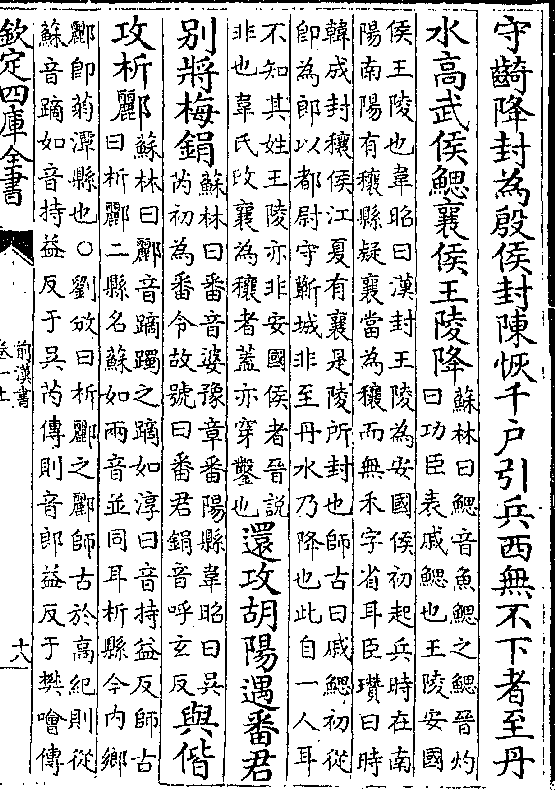 守齮降封為殷侯封陳恢千户引兵西無不下者至丹
水高武侯鰓襄侯王陵降
蘇林曰鰓音魚鰓之鰓晉灼
曰功臣表戚鰓也王陵安國
侯王陵也韋昭曰漢封王陵為安國侯初起兵時在南
陽南陽有穰縣疑襄當為穰而無禾字省耳臣瓚曰時
韓成封穰侯江夏有襄是陵所封也師古曰戚鰓初從
即為郎以都尉守蘄城非至丹水乃降也此自一人耳
不知其姓王陵亦非安國侯者晉説
非也韋氏改襄為穰者蓋亦穿鑿也
還攻胡陽遇番君
别將梅鋗
蘇林曰番音婆豫章番陽縣韋昭曰吳
芮初為番令故號曰番君鋗音呼玄反
與偕
攻析酈
蘇林曰酈音蹢躅之蹢如淳曰音持益反師古
曰析酈二縣名蘇如兩音並同耳析縣今内鄉
酈即菊潭縣也○劉攽曰析酈之酈師古於高紀則從
蘇音蹢如音持益反于吳芮傳則音郎益反于樊噲傳
欽定四庫全書
前漢書
卷一上
十八